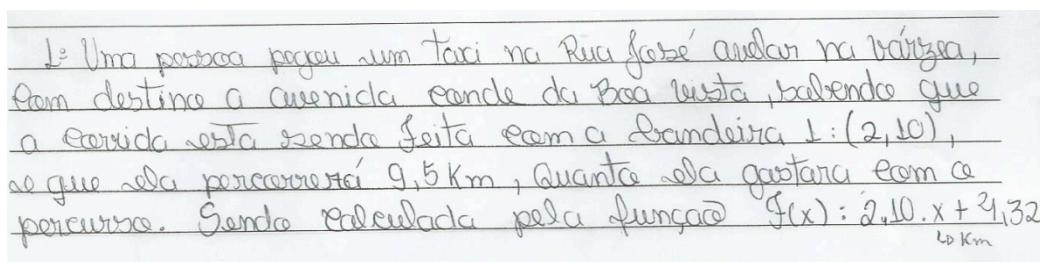 1º Uma pessoa pegou um taxi na Rua José audar na várzea,
com destino a avenida conde da Boa vista, sabendo que
a corrida esta sendo feita com a bandeira 1: (2,10),
e que ela percorrerá 9,5 Km, Quanto ela gastara com o
percurso. Sendo calculada pela função f(x): 2,10.x + 4,32
↳ Km